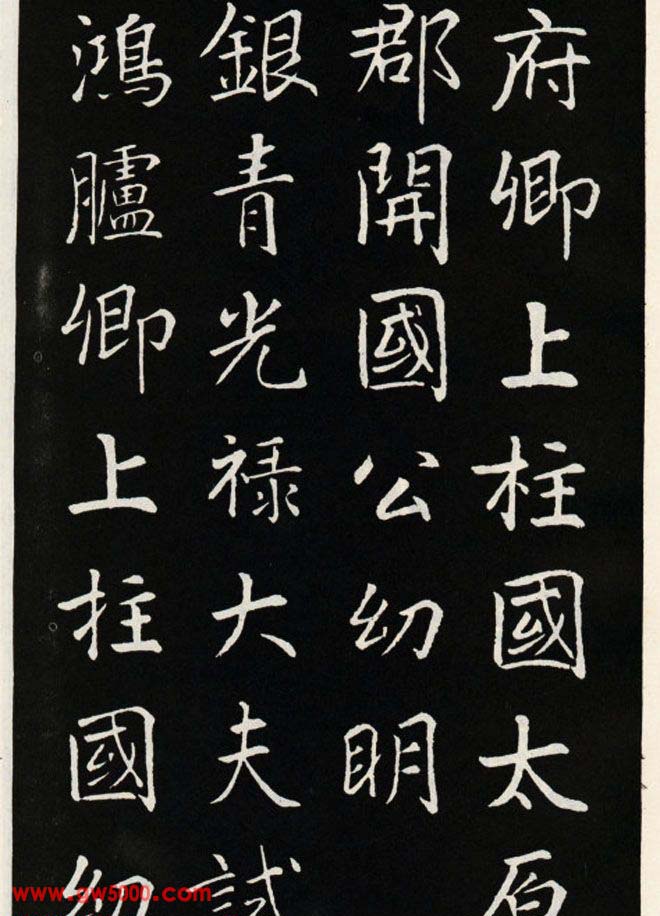 府卿上柱國太原
郡開國公幼明
銀青光禄大夫試
鴻臚卿上柱國幼
www.gw5000.com